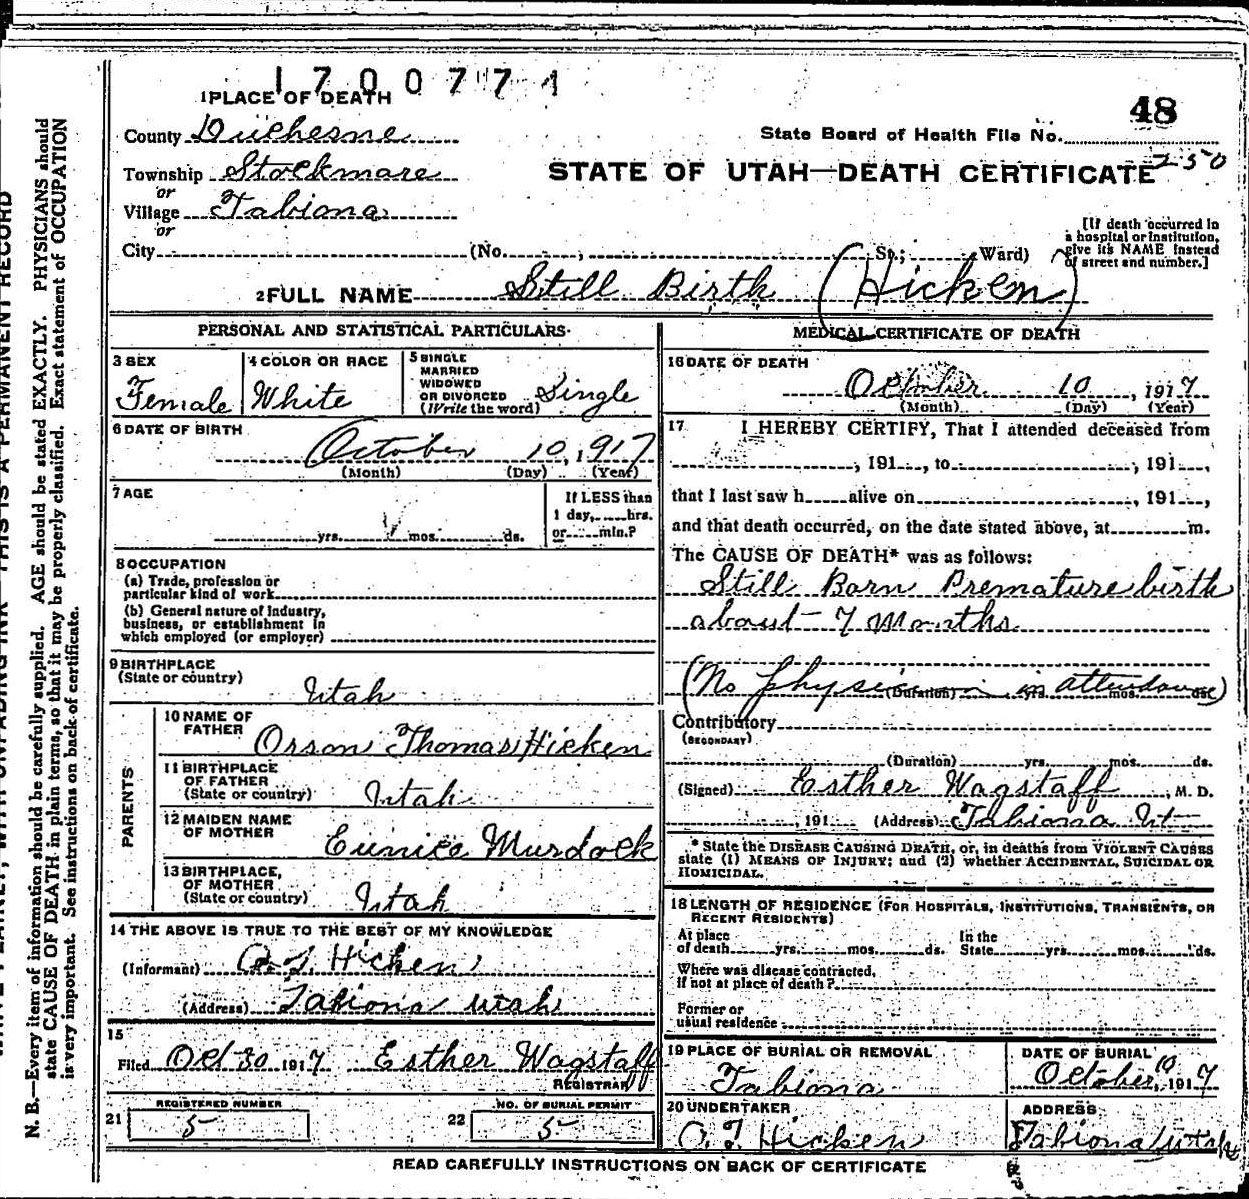 1700774
1 PLACE OF DEATH
48
County Duchesne
State Board of Health File No.
Township Stockmore
STATE OF UTAH—DEATH CERTIFICATE 250
or
Village Tabiona
or
City (No. , St.; Ward)
[If death occurred in
a hospital or institution,
give its NAME instead
of street and number.]
2 FULL NAME Still Birth (Hicken)
PERSONAL AND STATISTICAL PARTICULARS
3 SEX
Female
4 COLOR OR RACE
White
5 SINGLE
MARRIED
WIDOWED
OR DIVORCED
(Write the word) Single
6 DATE OF BIRTH
October 10, 1917
(Month) (Day) (Year)
7 AGE
yrs. mos. ds.
If LESS than
1 day, hrs.
or min.?
8 OCCUPATION
(a) Trade, profession or
particular kind of work
(b) General nature of Industry,
business, or establishment in
which employed (or employer)
9 BIRTHPLACE
(State or country)
Utah
PARENTS
10 NAME OF
FATHER
Orson Thomas Hicken
11 BIRTHPLACE
OF FATHER
(State or country) Utah
12 MAIDEN NAME
OF MOTHER
Eunice Murdock
13 BIRTHPLACE,
OF MOTHER
(State or country) Utah
14 THE ABOVE IS TRUE TO THE BEST OF MY KNOWLEDGE
(Informant) O. T. Hicken
(Address) Tabiona Utah
15
Filed Oct 30 1917 Esther Wagstaff
REGISTRAR
REGISTERED NUMBER
21 5
NO. OF BURIAL PERMIT
22 5
MEDICAL CERTIFICATE OF DEATH
16 DATE OF DEATH
October 10, 1917
(Month) (Day) (Year)
17 I HEREBY CERTIFY, That I attended deceased from
, 191 , to , 191 ,
that I last saw h alive on , 191 ,
and that death occurred, on the date stated above, at m.
The CAUSE OF DEATH* was as follows:
Still Born Premature birth
about 7 months
(No physician in attendance)
(Duration) yrs. mos. ds.
Contributory
(SECONDARY)
(Duration) yrs. mos. ds.
(Signed) Esther Wagstaff, M. D.
, 191 (Address) Tabiona Ut
* State the DISEASE CAUSING DEATH, or, in deaths from VIOLENT CAUSES
state (1) MEANS OF INJURY; and (2) whether ACCIDENTAL, SUICIDAL OR
HOMICIDAL.
18 LENGTH OF RESIDENCE (FOR HOSPITALS, INSTITUTIONS, TRANSIENTS, OR
RECENT RESIDENTS)
At place
of death yrs. mos. ds.
In the
State yrs. mos. ds.
Where was disease contracted,
if not at place of death?
Former or
usual residence
19 PLACE OF BURIAL OR REMOVAL
Tabiona
DATE OF BURIAL
October 10 1917
20 UNDERTAKER
O. T. Hicken
ADDRESS
Tabiona Utah
READ CAREFULLY INSTRUCTIONS ON BACK OF CERTIFICATE
THIS IS A PERMANENT RECORD
N. B.—Every item of information should be carefully supplied. AGE should be stated EXACTLY. PHYSICIANS should
state CAUSE OF DEATH in plain terms, so that it may be properly classified. Exact statement of OCCUPATION
is very important. See instructions on back of certificate.